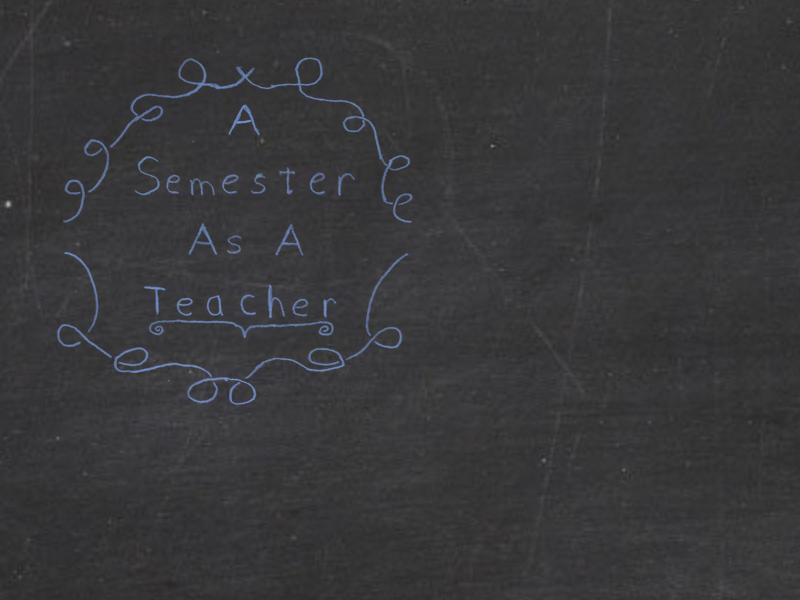 A
Semester
As A
Teacher